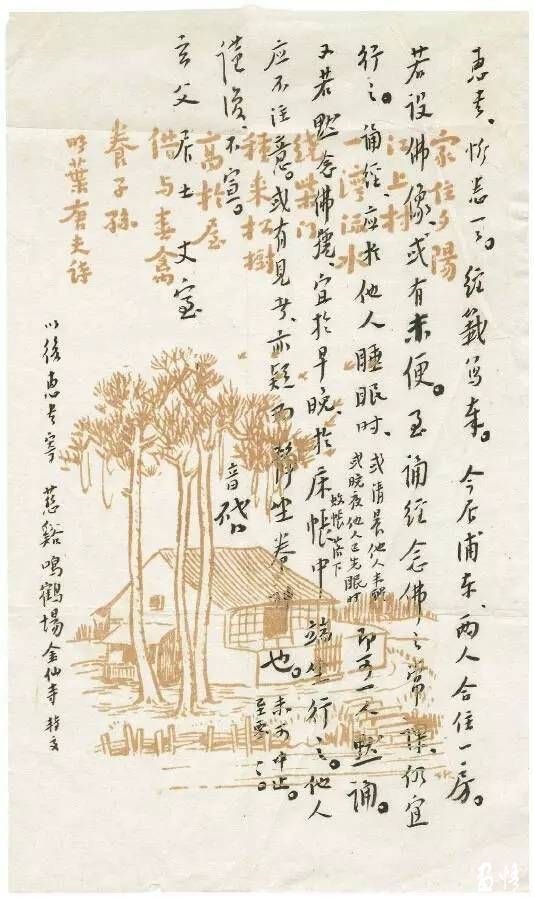 惠書、忻悉一一。經籤寫奉。今居浦东、两人合住一房。
若設佛像、或有未便。至誦經念佛之常課、仍宜
行之。誦經、應於他人睡眠时、
或清晨他人未醒
或晚夜他人已先眠时
蚊帐落下
即可一人默誦。
又若默念佛號、宜於早晚、於床帐中端坐行之。他人
应不注意。或有見者、亦疑為静坐養也。
未可中止。
至要
謹復、不宣。
玄父居士丈室
音啓
以後惠書寄慈谿鳴鶴場金仙寺轉交
家住夕陽
江上村
一灣流水
繞柴門
種来松樹
高於屋
借与春禽
養子孫
明葉唐夫詩